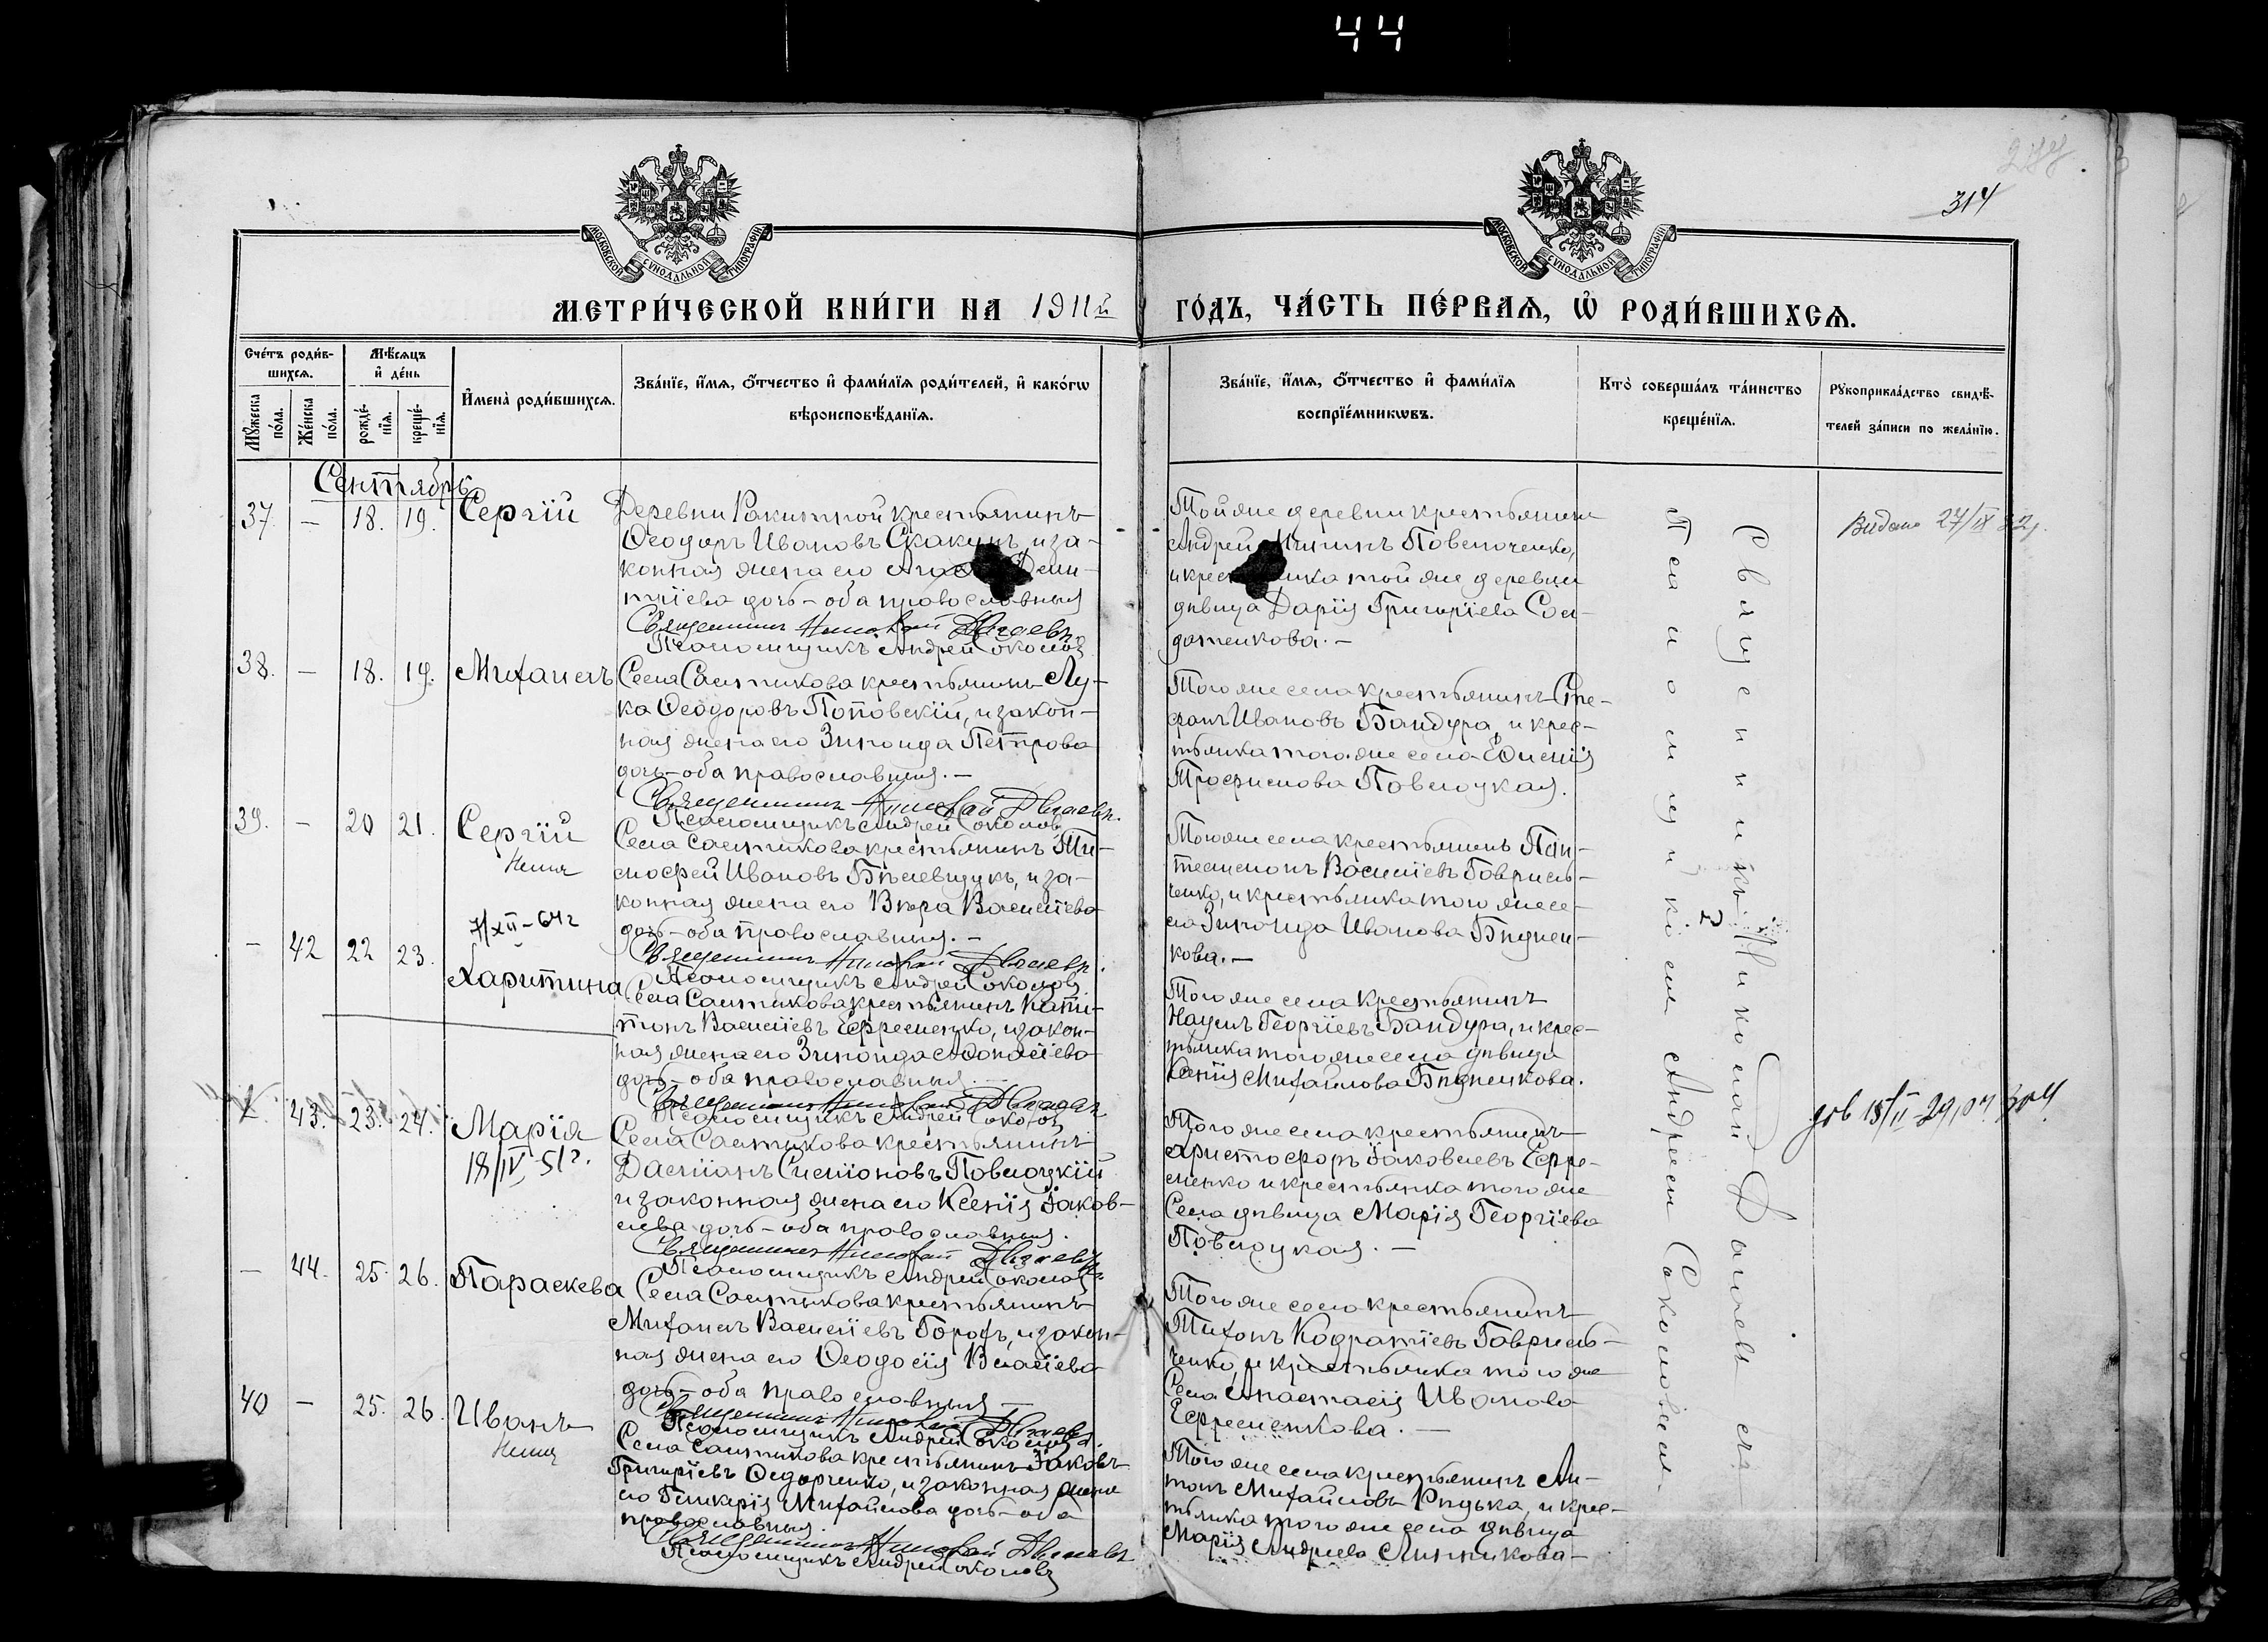 44
314
МОСКОВСКОЙ СѴНОДАЛЬНОЙ ТИПОГРАФІИ
МОСКОВСКОЙ СѴНОДАЛЬНОЙ ТИПОГРАФІИ
МЕТРИ́ЧЕСКОЙ КНИ́ГИ НА 1911й ГО́ДЪ, ЧА́СТЬ ПЕ́РВАѦ, Ѡ҆ РОДИ́ВШИХСѦ.
Сче́тъ роди́в-
шихсѧ.
Мѣ́сѧцъ
и҆ де́нь
Мꙋ́жеска
по́ла.
Же́нска
по́ла.
рожде́-
нїѧ.
креще́-
нїѧ.
И҆мена̀ роди́вшихсѧ.
Зва́нїе, и҆́мѧ, ѻ҆́тчество и҆ фами́лїѧ роди́телей, и҆ како́гѡ
вѣроисповѣ́данїѧ.
Зва́нїе, и҆́мѧ, ѻ҆́тчество и҆ фами́лїѧ
воспрїе́мникѡвъ.
Кто̀ соверша́лъ та́инство
креще́нїѧ.
Рꙋкоприкла́дство свидѣ́-
телей за́писи по жела́нїю.
Сентябрь
37. – 18. 19. Сергій
Деревни Ракитной крестьянинъ
Ѳеодоръ Ивановъ Скакунъ, и за-
конная жена его
дочь – оба православныя
Священникъ Николай
Псаломщикъ Андрей Соколовъ
Той же деревни крестьянинъ
Андрей
той же деревни
дѣвица Дарія Григоріева Сол-
датенкова. –
38. – 18. 19. Михаилъ
Села Салтыкова крестьянинъ Лу-
ка Ѳеодоровъ Поповскій, и закон-
ная жена его Зинаида Петрова
дочь – оба православныя. –
Священникъ Николай
Псаломщикъ Андрей Соколовъ
Того же села крестьянинъ Сте-
фанъ Ивановъ Бандура, и крес-
тьянка того же села Ефимія
Трофимова Повелоцкая.
39. – 20 21. Сергій
Села Салтыкова крестьянинъ Ти-
мофей Ивановъ и за-
конная жена его Вѣра Василіева
дочь – оба православныя. –
Священникъ Николай
Псаломщикъ Андрей Соколовъ
Того же села крестьянинъ Пан-
телеимонъ Василіевъ Гаврись-
ченко, и крестьянка того же се-
ла Зинаида Иванова
кова. –
7/XII – 64 г
– 42 22 23. Харитина
Села Салтыкова крестьянинъ Капи-
тонъ Василіевъ Ефременко, и закон-
ная жена его Зинаида Аѳанасіева
дочь – оба православныя. –
Священникъ Николай
Псаломщикъ Андрей Соколовъ
Того же села крестьянинъ
Наумъ Георгіевъ Бандура, и крес-
тьянка того же села дѣвица
Ксенія Михайлова
43. 23. 24. Марія
18/IV 51 г.
Села Салтыкова крестьянинъ
Даміанъ Симіоновъ Повелоцкій
и законная жена его Ксенія Іаков-
лева дочь – оба православныя.
Священникъ Николай
Псаломщикъ Андрей Соколовъ
Того же села крестьянинъ
Христофоръ Іаковлевъ Ефре-
менко и крестьянка того же
Села дѣвица Марія Георгіева
Повелоцкая. –
– 44. 25. 26. Параскева
Села Салтыкова крестьянинъ
Михаилъ Василіевъ Горохъ, и закон-
ная жена его Ѳеодосія Власіева
дочь – оба православныя –
Священникъ Николай
Псаломщикъ Андрей Соколовъ
Того же села крестьянинъ
Тихонъ Кодратіевъ Гаврись-
ченко, и крестьянка того же
Села Анастасія Иванова
Ефременкова. –
40 – 25. 26. Иванъ
Села Салтыкова крестьянинъ Іаковъ
Григоріевъ Ѳедорченко, и законная жена
его Гликерія Михайлова дочь – оба
православныя.
Священникъ Николай
Псаломщикъ Андрей Соколовъ
Того же села крестьянинъ Ан-
тонъ Михайловъ Рѣдька, и крес-
тьянка того же села дѣвица
Марія Андреева Линникова –
Священникъ Николай
Псаломщикомъ Андреемъ Соколовымъ.